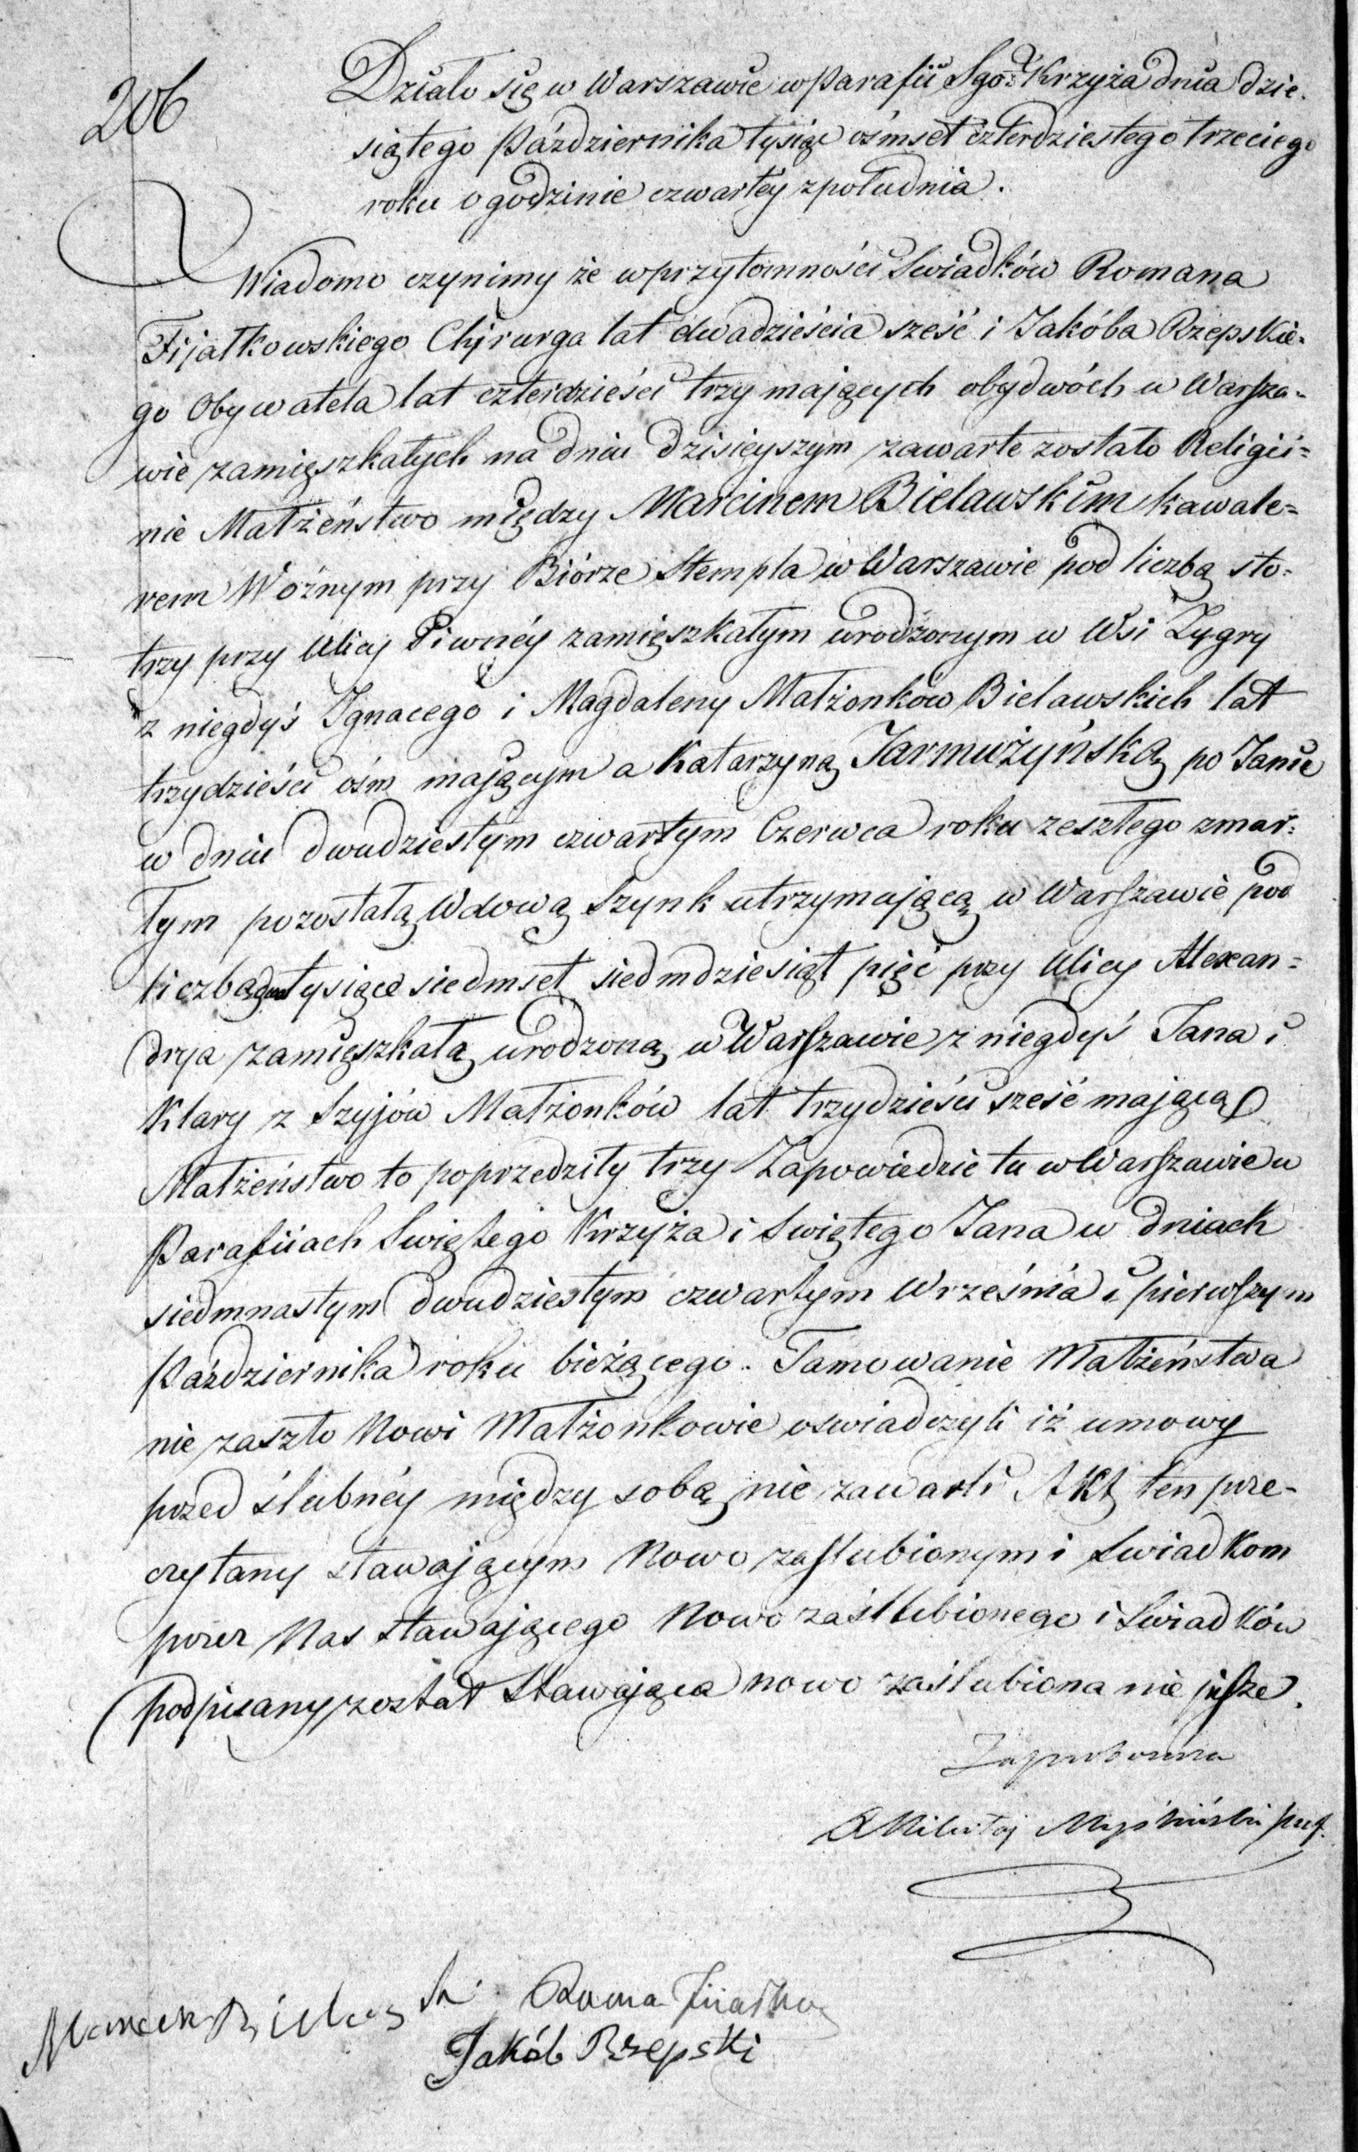 206
Działo się w Warszawie w Parafii Sgo Krzyża dnia dzie-
siątego Października tysiąc ośmset czterdziestego trzeciego
roku o godzinie czwartey z południa.
Wiadomo czynimy że w przytomności Swiadków Romana
Fijałkowskiego Chjrurga lat dwadzieścia sześć i Jakóba Rzepskie-
go Obywatela lat czterdzieści trzy mających obydwóch w Warsza-
wie zamięszkałych na dniu dzisieyszym zawarte zostało Religii-
nie Małżeństwo między Marcinem Bielawskim kawale-
rem Woźnym przy Biórze Stempla w Warszawie pod liczbą sto-
trzy przy Ulicy Piwnéy zamięszkałym urodzonym w Wsi Zygry
z niegdyś Ignacego i Magdaleny Małżonków Bielawskich lat
trzydzieści ośm mającym a Katarzyną Jarmużyńską po Janie
w dniu dwudziestym czwartym Czerwca roku zeszłego zmar-
łym pozostałą Wdową Szynk utrzymującą w Warszawie pod
liczbą dwa tysiące siedmset siedmdziesiąt pięć przy Ulicy Alexan-
drya zamięszkałą urodzoną w Warszawie z niegdyś Jana i
Klary z Szyjów Małżonków lat trzydzieści sześć mającą
Małżeństwo to poprzedziły trzy Zapowiedzie tu w Warszawie w
Parafiiach Swiętego Krzyża i Swiętego Jana w dniach
siedmnastym dwudziestym czwartym Września i pierwszym
Października roku bieżącego. Tamowanie Małżeństwa
nie zaszło Nowi Małżonkowie oswiadczyli iż umowy
przed ślubnéy między sobą nie zawarli Akt ten prze-
czytany stawającym Nowo zaślubionym i Swiadkom
przez Nas stawającego Nowo zaślubionego i Swiadków
podpisany został Stawająca nowo zaślubiona nie pisze.
X Mikołaj
Jakób Rzepski